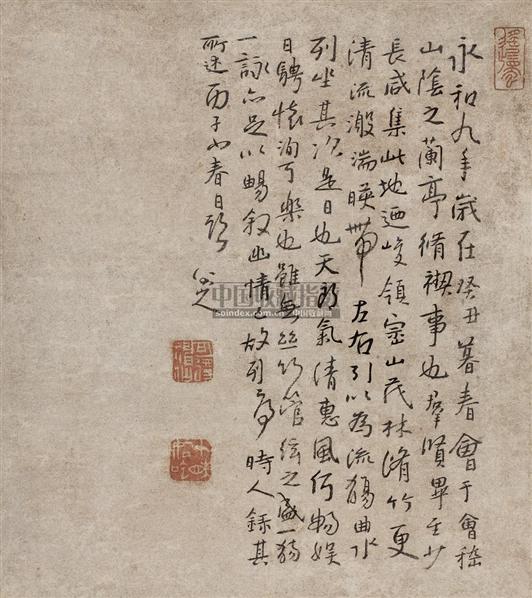 永和九年歲在癸丑暮春會于會稽
山陰之蘭亭脩禊事也羣賢畢至少
長咸集此地迺峻領崇山茂林脩竹更
清流激湍暎帶左右引以為流觴曲水
列坐其次是日也天朗氣清惠風和暢娛
目騁懷洵可樂也雖無絲竹管絃之盛一觴
一詠亦足以暢敘幽情故列序時人錄其
所述丙子小春日
八大山人
可得神仙
中国收藏指数
soindex.com